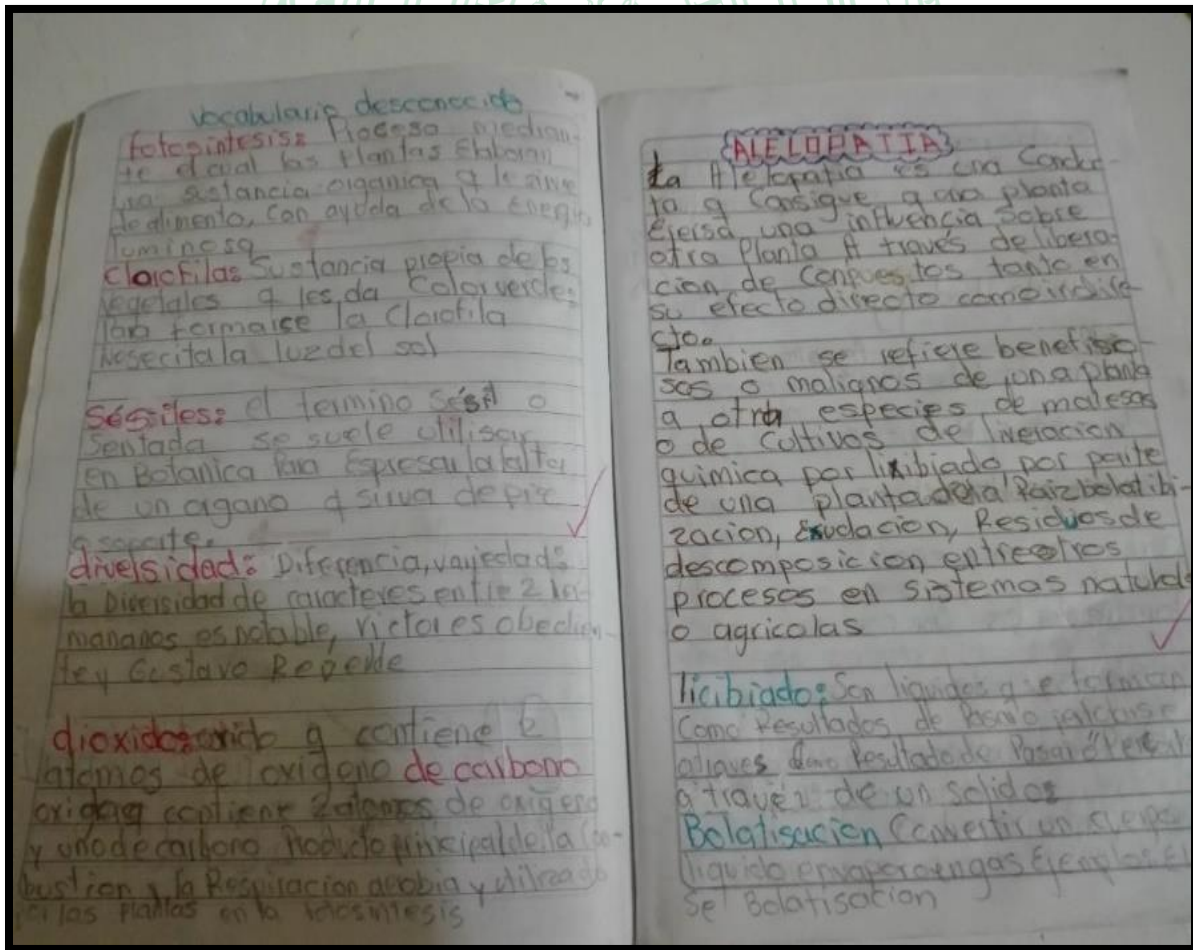 vocabulario desconocido
fotosintesis: Proceso median-
te el cual las Plantas Elaboran
una sustancia organica q le sirve
de alimento, Con ayuda de la Energia
luminosa
Clorofilas Sustancia propia de los
vegetales q les da Color verde:
para formarse la Clorofila
Nesecita la luz del sol
Sésiles: el termino sésil o
Sentada se suele utilisar
en Botanica Para Espresar la falta
de un organo q sirva de pie
o soporte.
diversidad: Diferencia, variedad:
la Diversidad de caracteres entre 2 her-
manos es notable, Victor es obedien-
te y Gustavo Rebelde
dioxido q contiene 2
atomos de oxigeno de carbono
q contiene 2 atomos de oxigeno
y uno de carbono Producto principal de la Co-
bustion y la Respiracion aerobia y utilizado
las Plantas en la fotosintesis
ALELOPATIA
La Alelopatia es una Conduc
ta q Consigue q una planta
Ejersa una influencia Sobre
otra Planta A través de libera-
cion de Conpuestos tanto en
su efecto directo como indire
cto.
Tambien se refiere benefisio
sos o malignos de una planta
a otra especies de malesas
o de Cultivos de liveracion
quimica por lixibiado por parte
de una planta de la Raiz bolatibi-
zacion, Exudacion, Residuos de
descomposicion entre otros
procesos en sistemas natural
o agricolas
licibiado: Son liquidos q se forman
Como Resultados de Pasar
Resultado de Pasar
a travez de un solidos
Bolatisacion Convertir un cuerpo
liquido en vapor o en gas Ejemplos El
se Bolatisacion